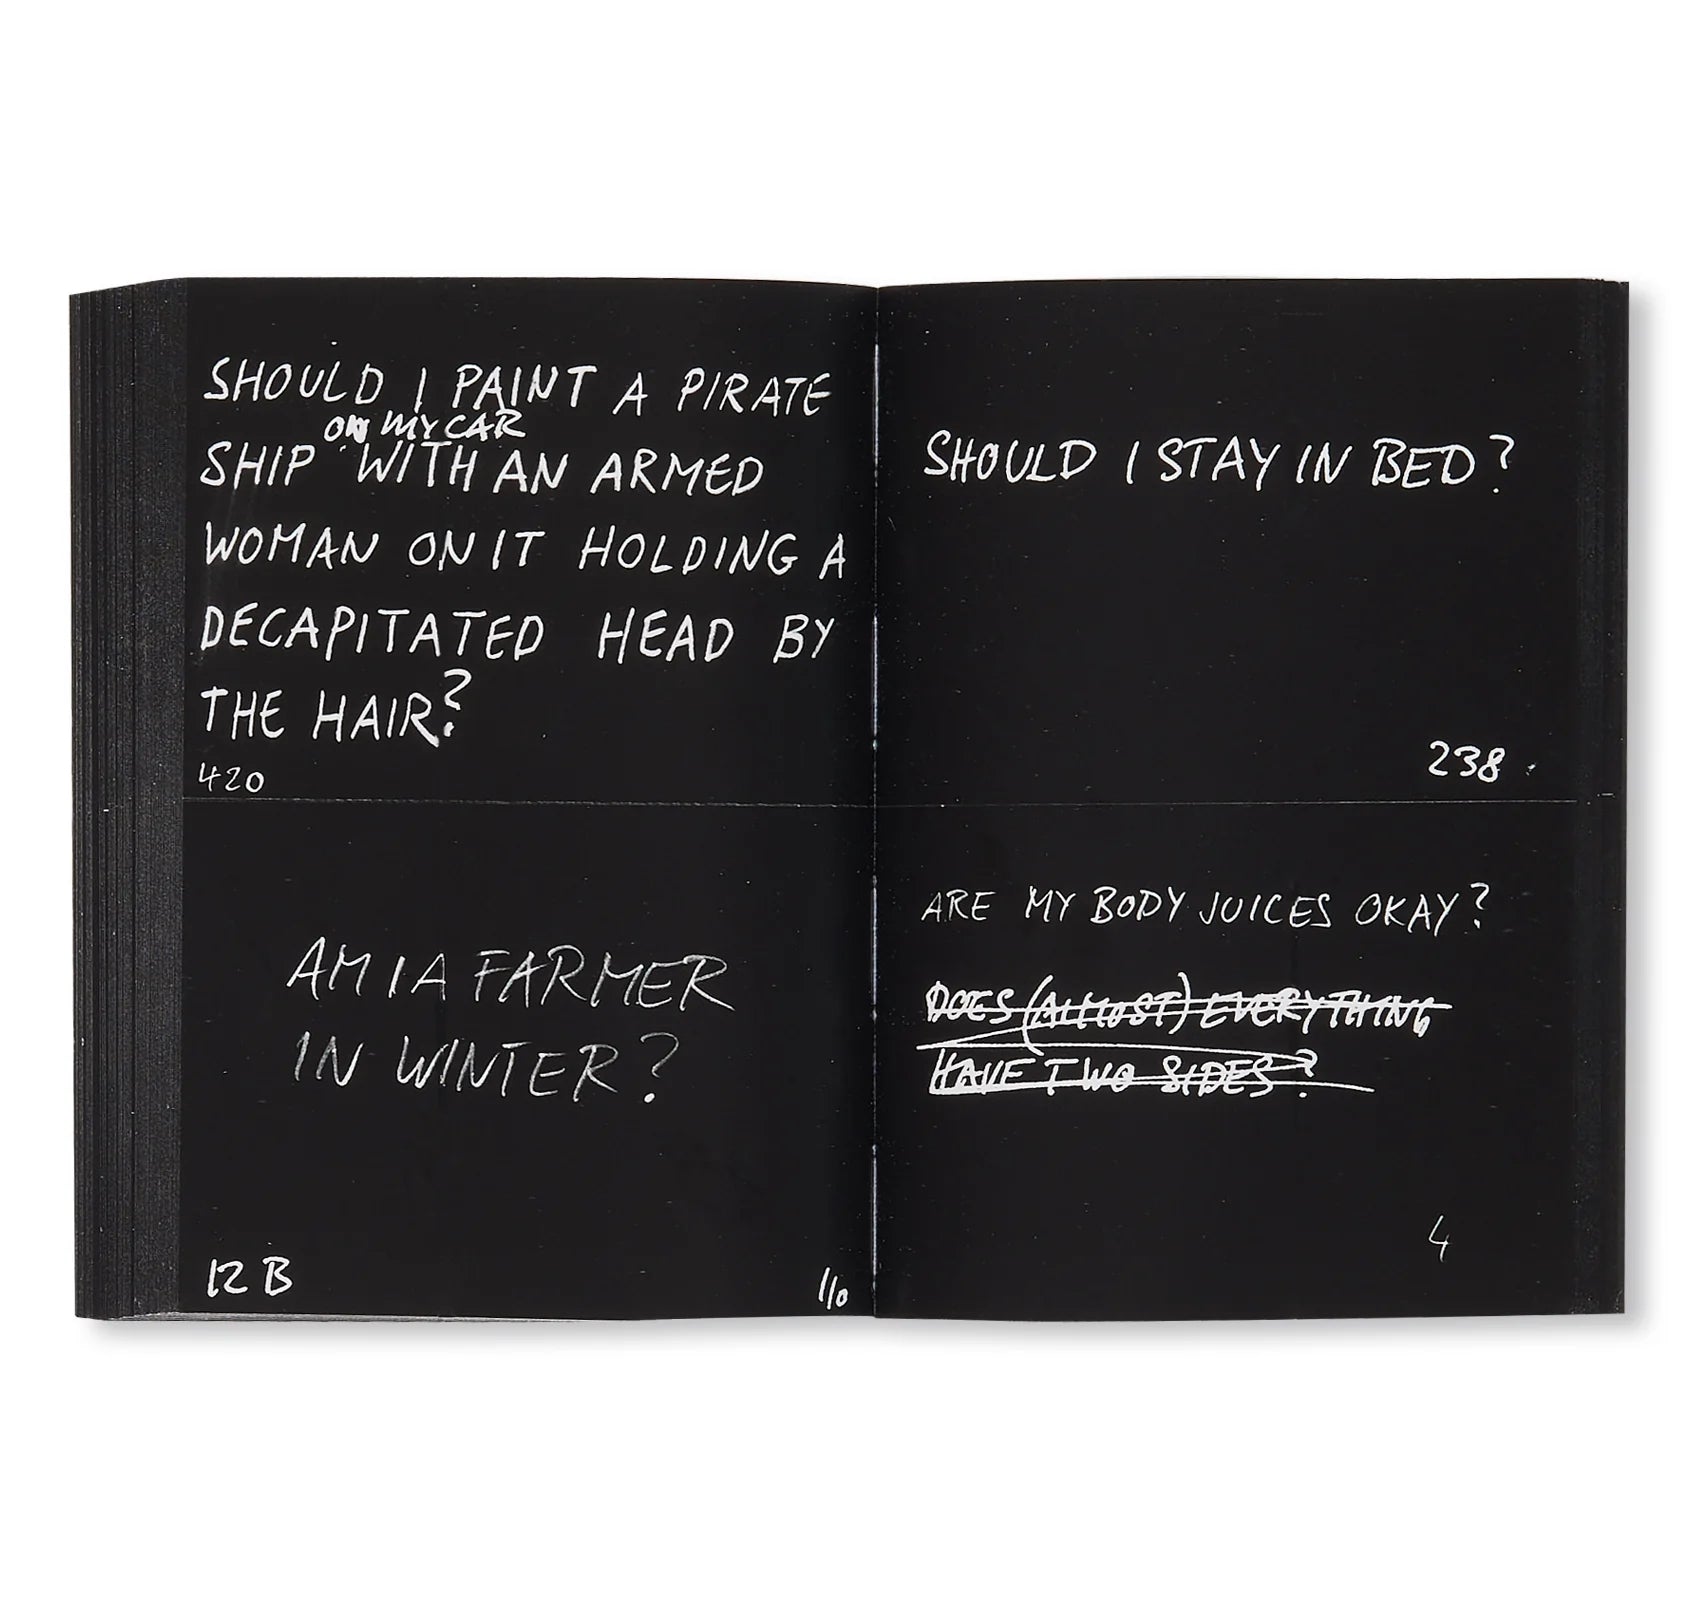 SHOULD I PAINT A PIRATE
ON MY CAR
SHIP WITH AN ARMED
WOMAN ON IT HOLDING A
DECAPITATED HEAD BY
THE HAIR?
420
AM I A FARMER
IN WINTER?
12 B
110
SHOULD I STAY IN BED?
238
ARE MY BODY JUICES OKAY?
DOES (ALMOST) EVERYTHING
HAVE TWO SIDES?
4